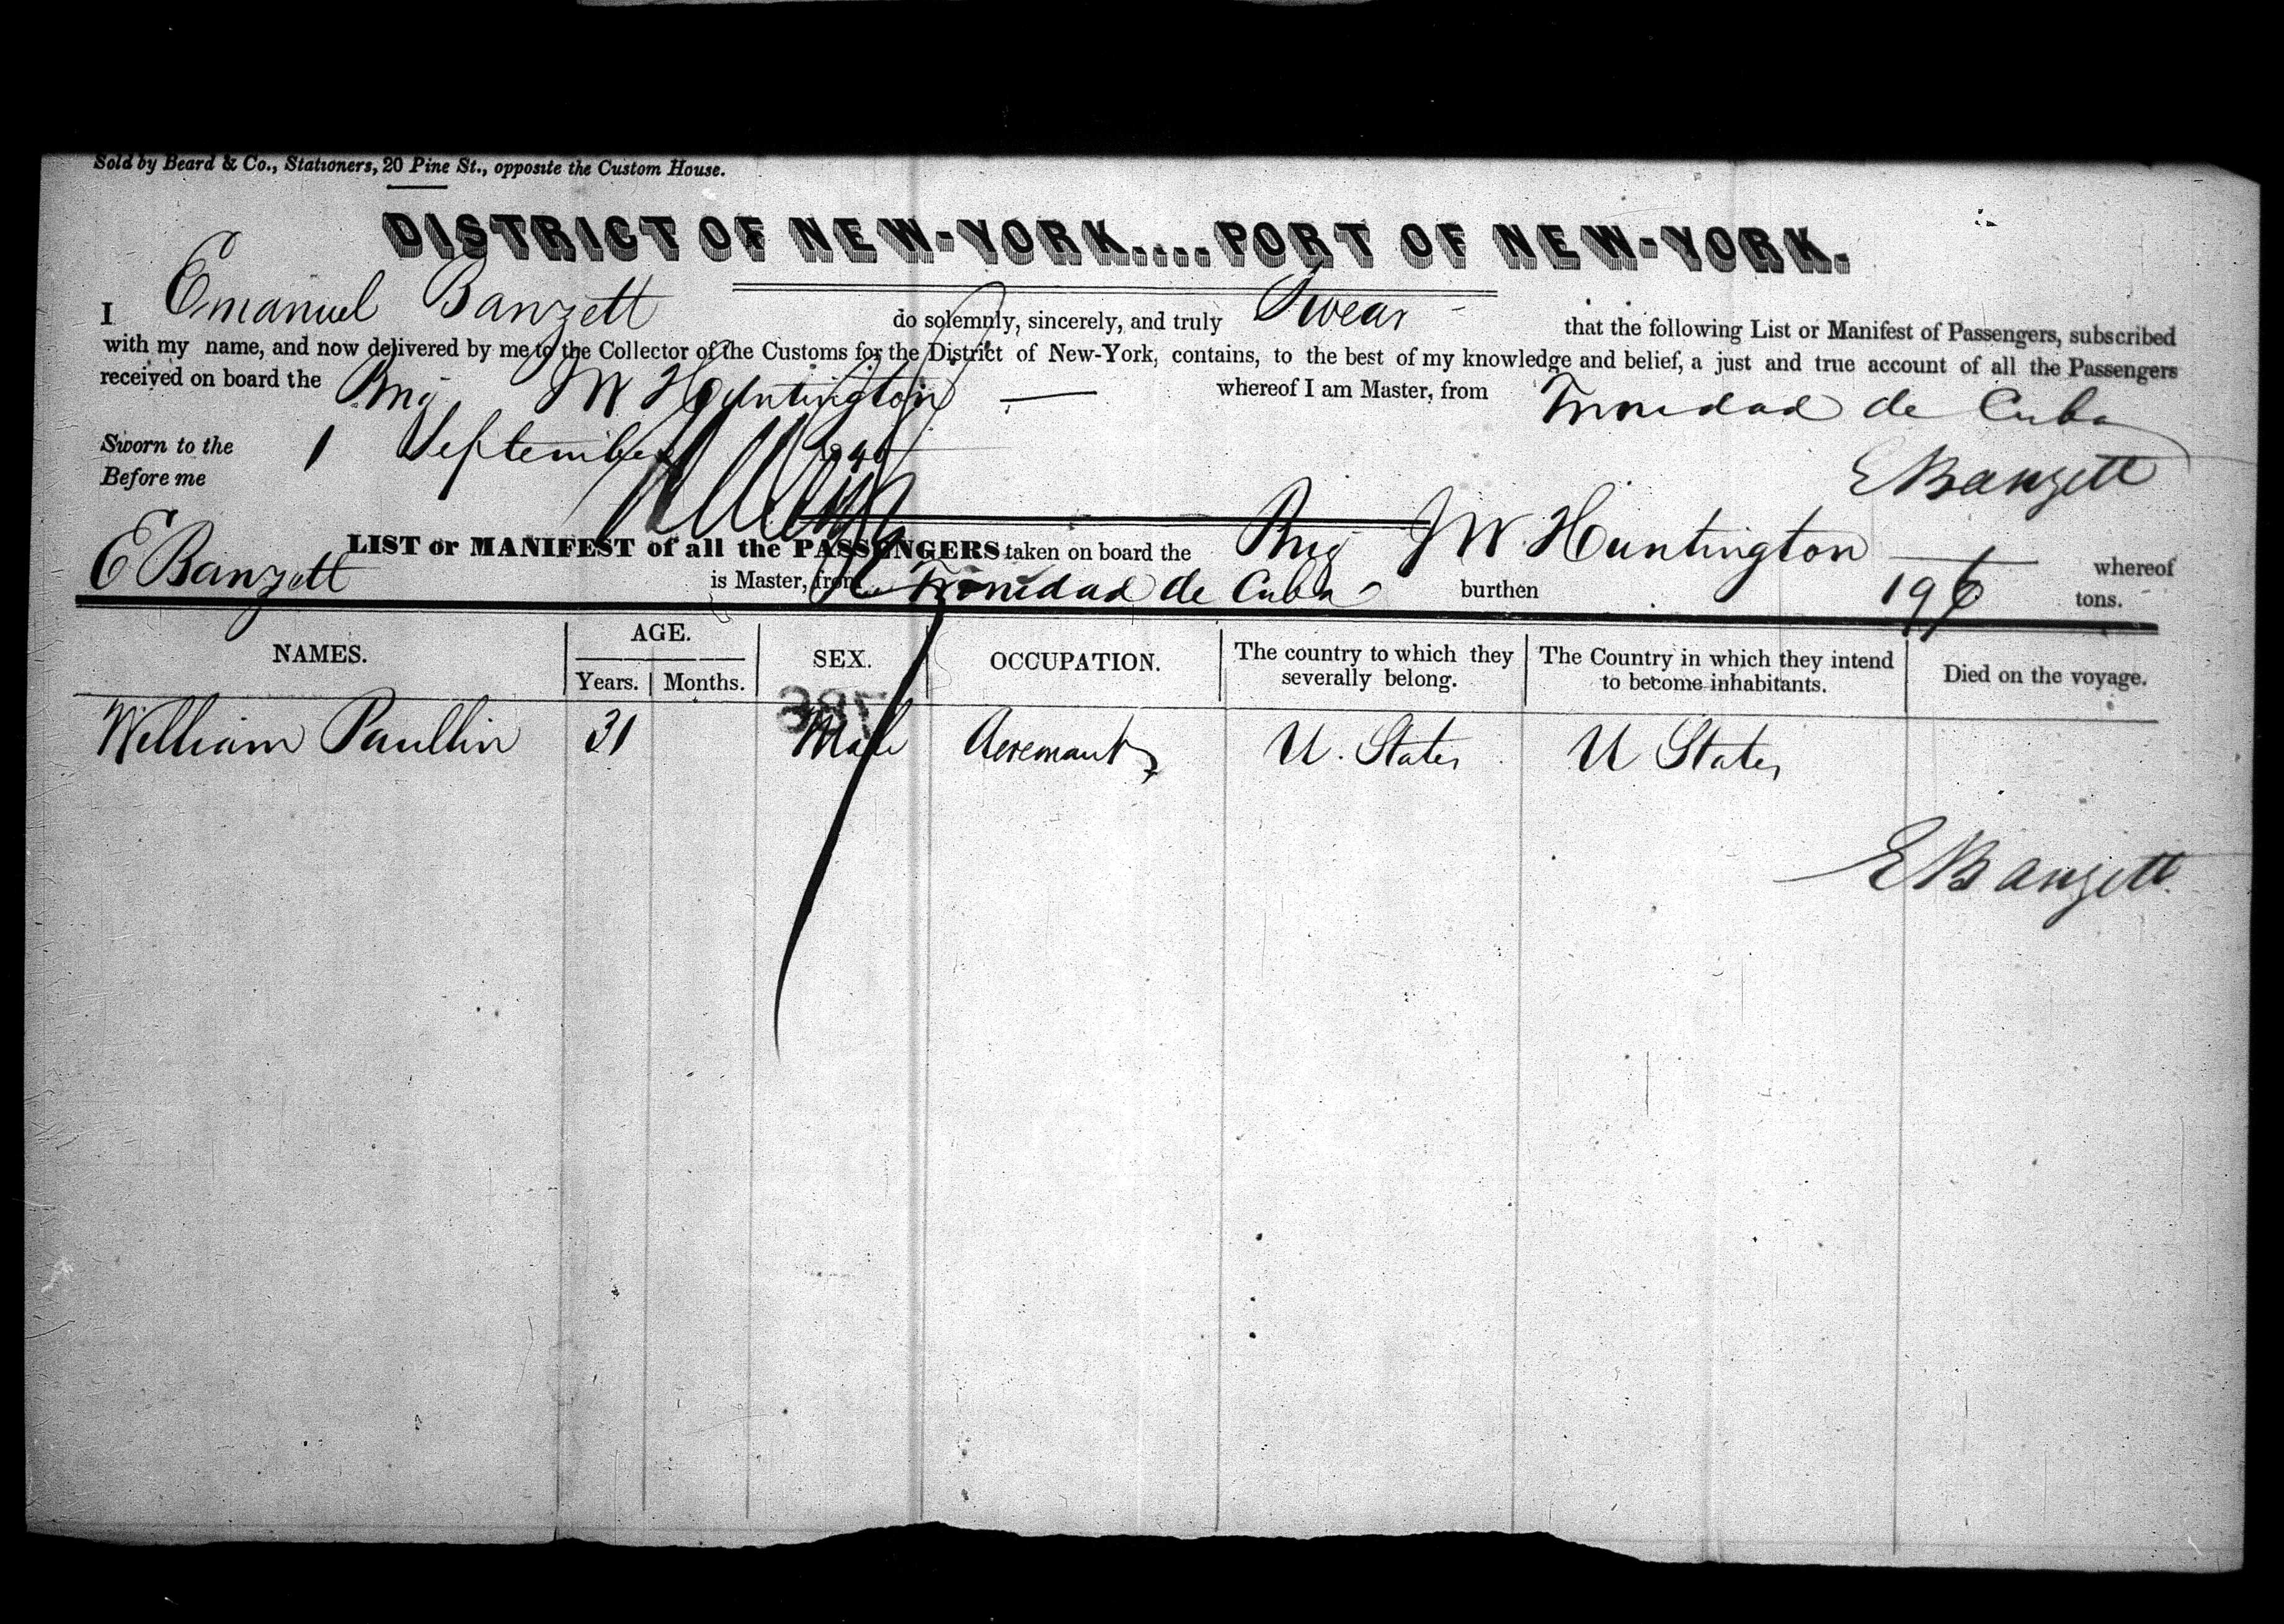 Sold by Beard & Co., Stationers, 20 Pine St., opposite the Custom House.
DISTRICT OF NEW-YORK....PORT OF NEW-YORK.
I Emanuel Banzett do solemnly, sincerely, and truly Swear that the following List or Manifest of Passengers, subscribed
with my name, and now delivered by me to the Collector of the Customs for the District of New-York, contains, to the best of my knowledge and belief, a just and true account of all the Passengers
received on board the Brig J W Huntington whereof I am Master, from Trinidad de Cuba
Sworn to the 1 September
Before me
E Banzett
LIST or MANIFEST of all the PASSENGERS taken on board the Brig J W. Huntington whereof
E Banzett is Master, from Trinidad de Cuba burthen 196 tons.
NAMES. AGE. Years. Months. SEX. OCCUPATION. The country to which they severally belong. The Country in which they intend to become inhabitants. Died on the voyage.
William Paullin 31 Male U. States U States
E Banzett